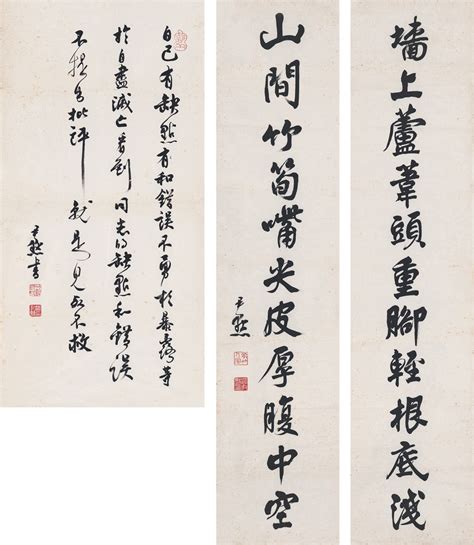 墻上蘆葦頭重腳輕根底淺
山間竹筍嘴尖皮厚腹中空
尹默
自己有缺點有和錯誤不勇於暴露等
於自盡滅亡看到同志的缺點和錯誤
不提出批評就是見死不救
尹默書